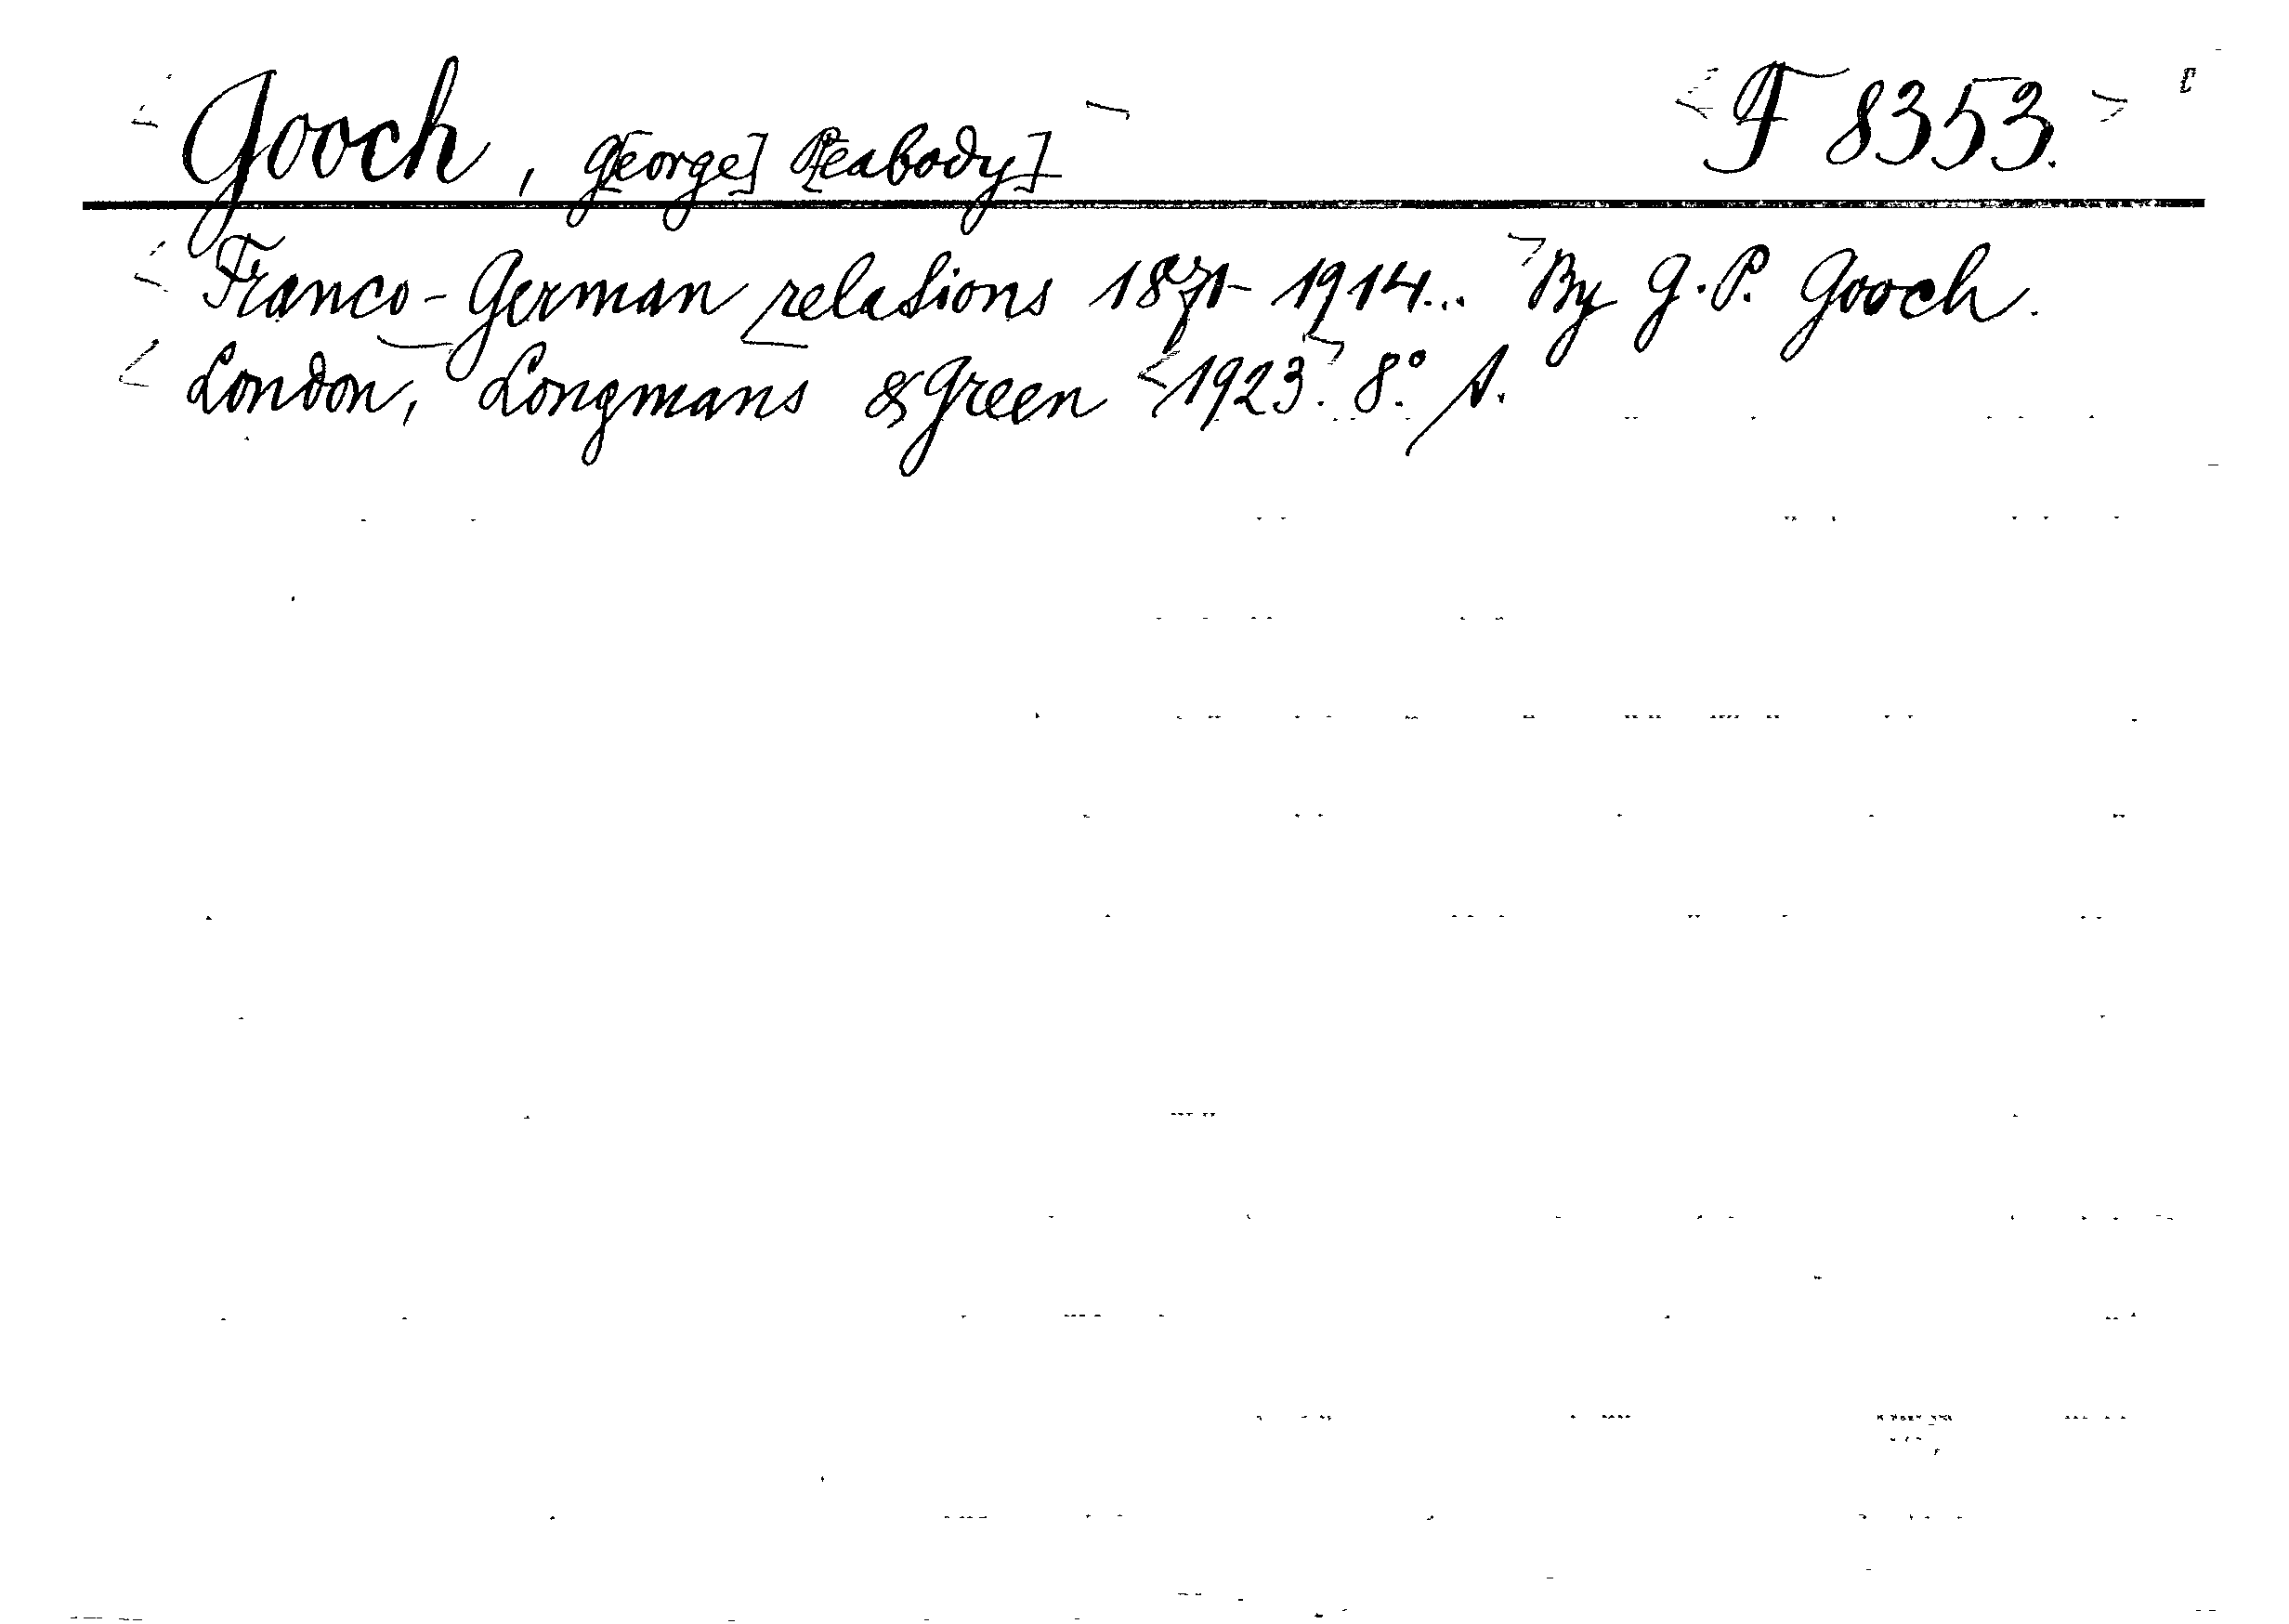 Gooch, G[eorge] P[eabody] F 8353.
Franco-German relations 1871-1914... By G. P. Gooch.
London, Longmans & Green 1923. 8° A.